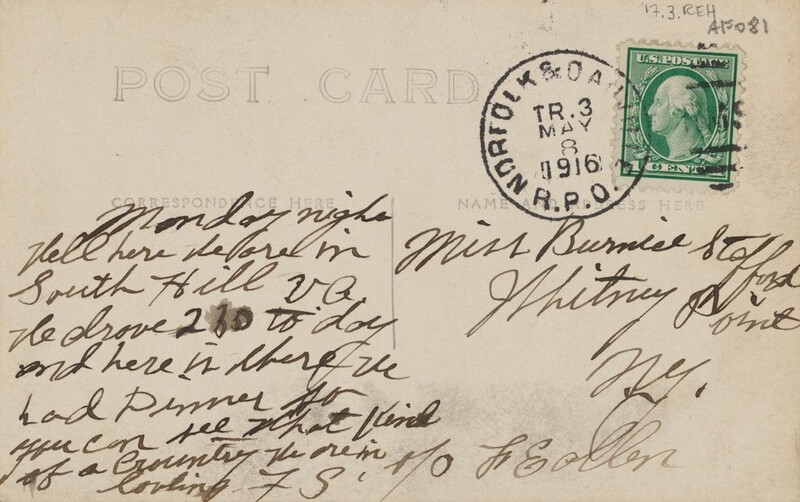 17.3.REH
AF081
POST CARD
U.S. POSTAGE
1 CENT
NORFOLK & DANVILLE R.P.O.
TR. 3
MAY
8
1916
CORRESPONDENCE HERE
NAME AND ADDRESS HERE
Monday nighe
Well here we are in
South Hill Va.
We drove 210 to day
and here is where we
had Dinner so
you can see what kind
of a Country we are in
F S.
Miss Burnice Stafford
Whitney Point
NY.
c/o F E Allen